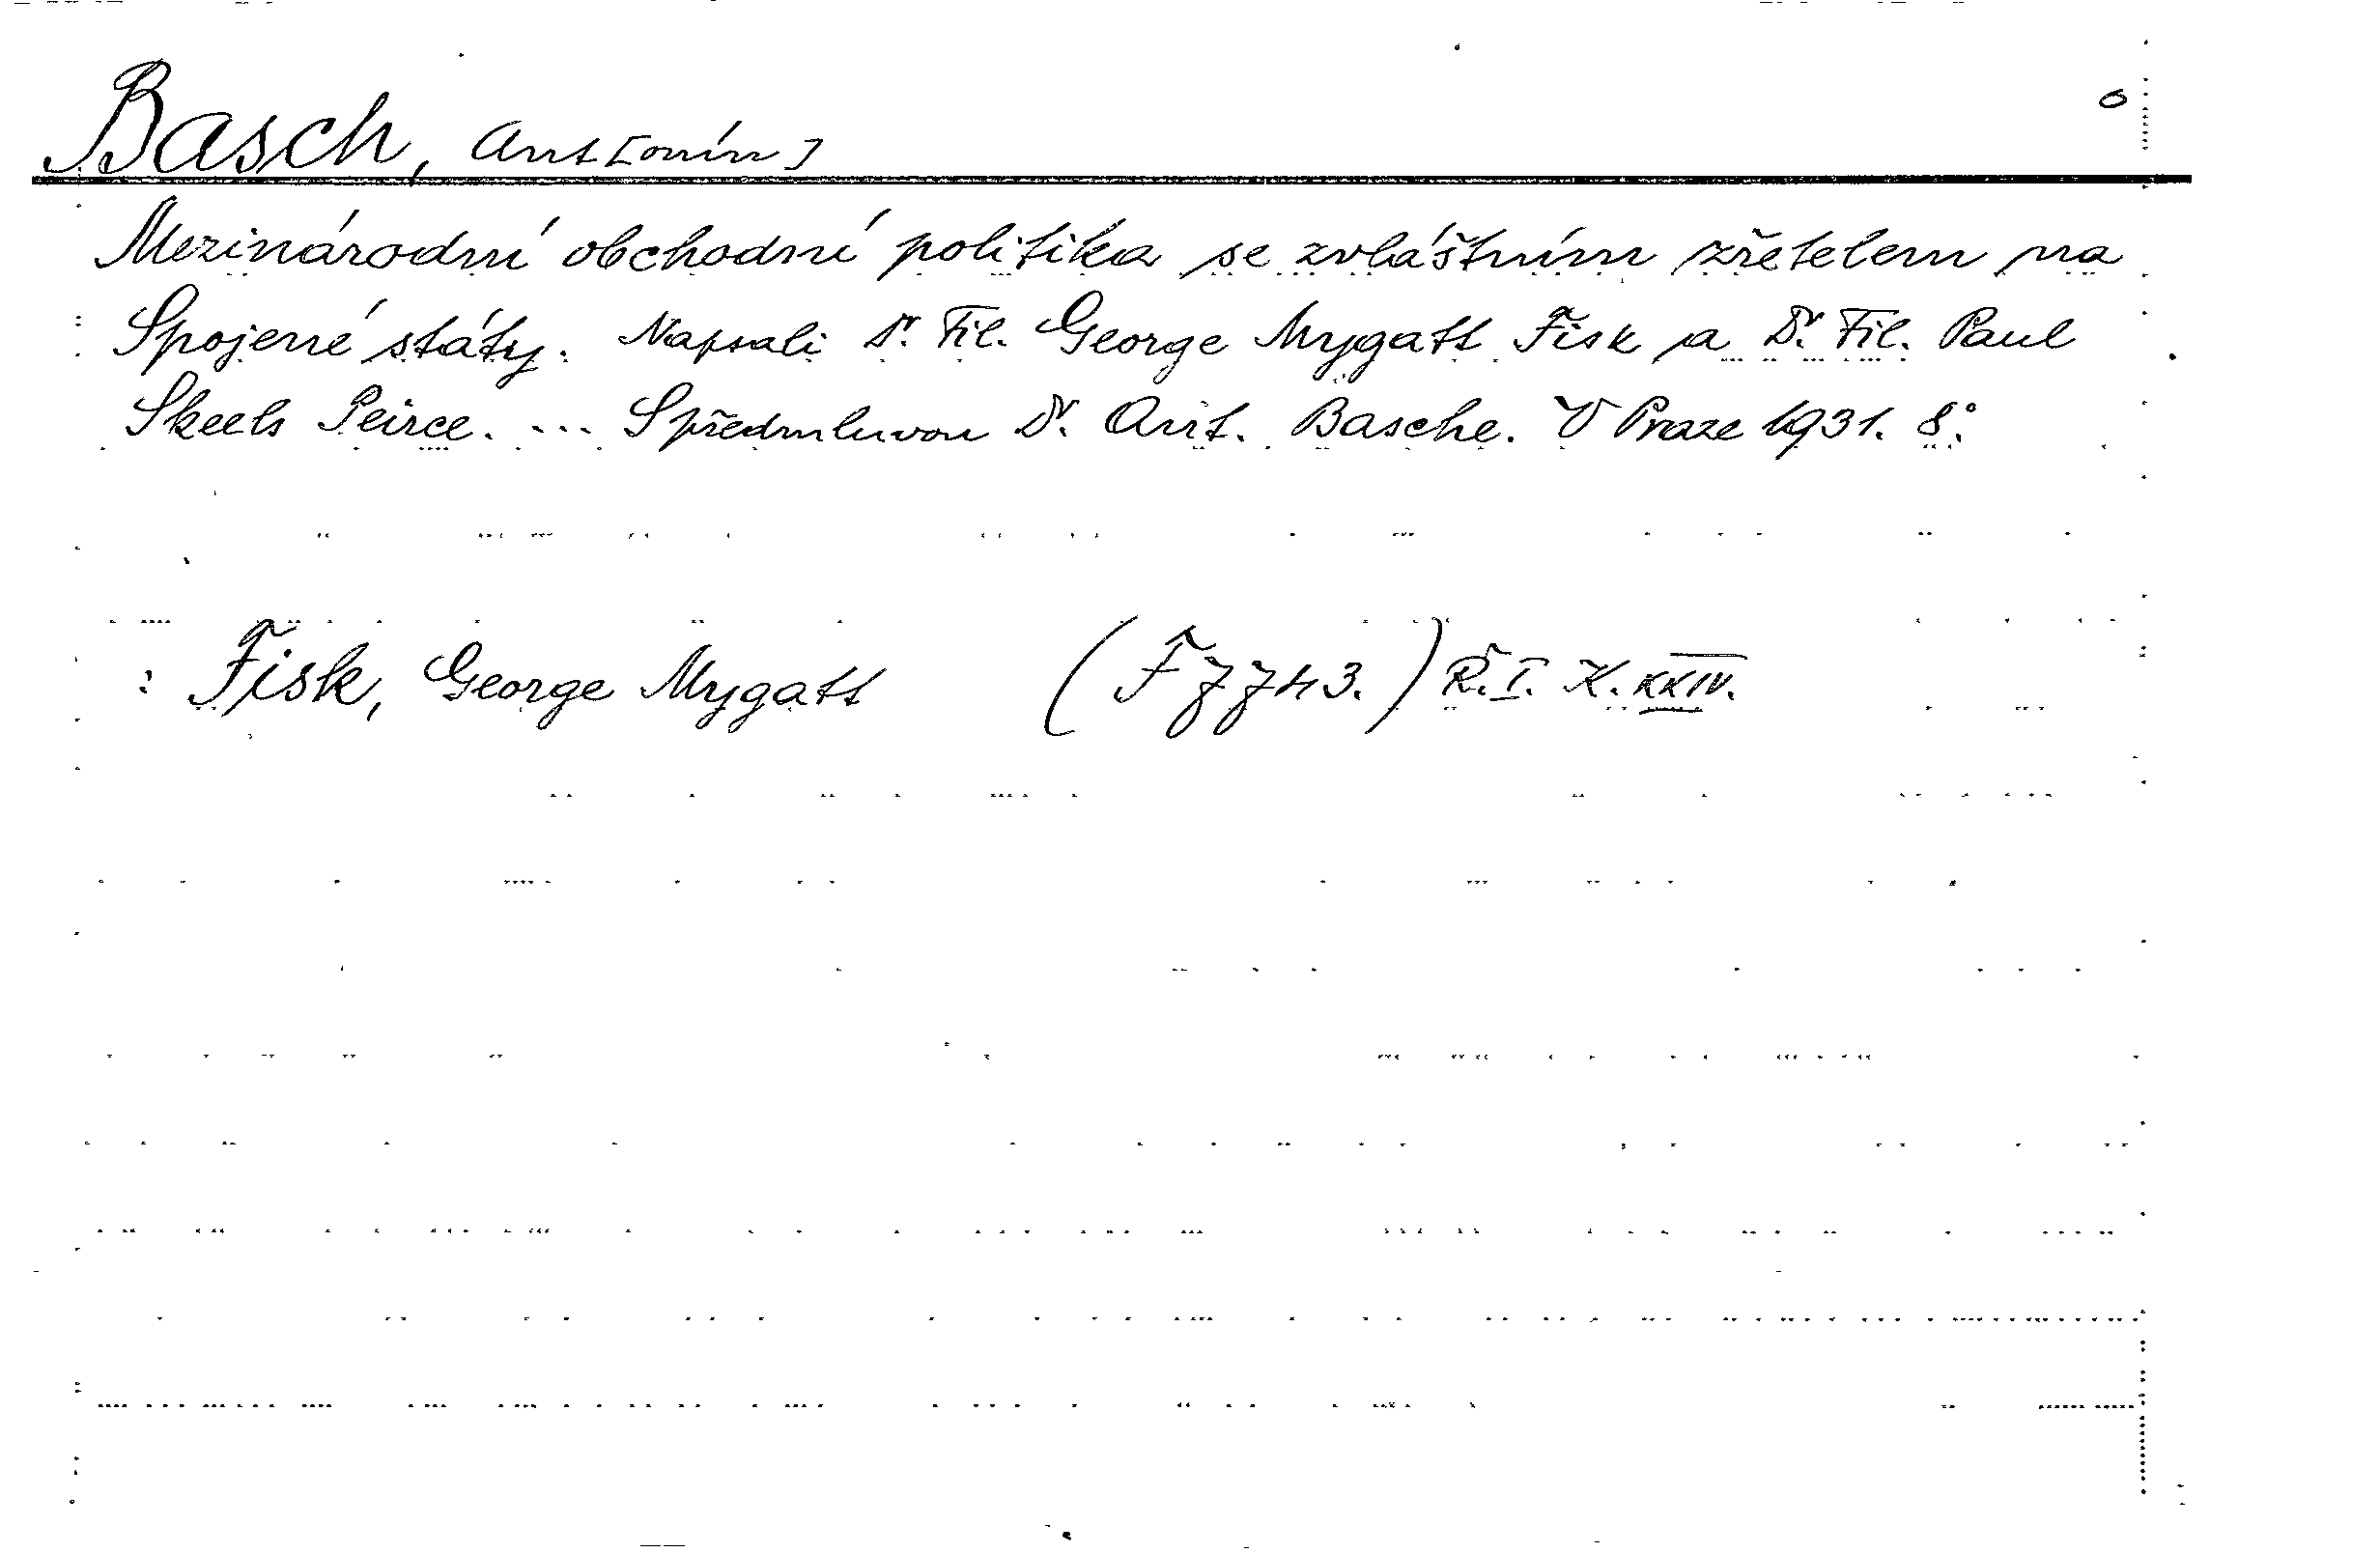 Basch, Ant[onín] o
Mezinárodní obchodní politika se zvláštním zřetelem na
Spojené státy. Napsali Dr. Fil. George Mygatt Fisk a Dr. Fil. Paul
Skeels Peirce. ... S předmluvou Dr. Ant. Basche. V Praze 1931. 8°.
: Fisk, George Mygatt (F 7743.) Ř. I. K. XXIV.